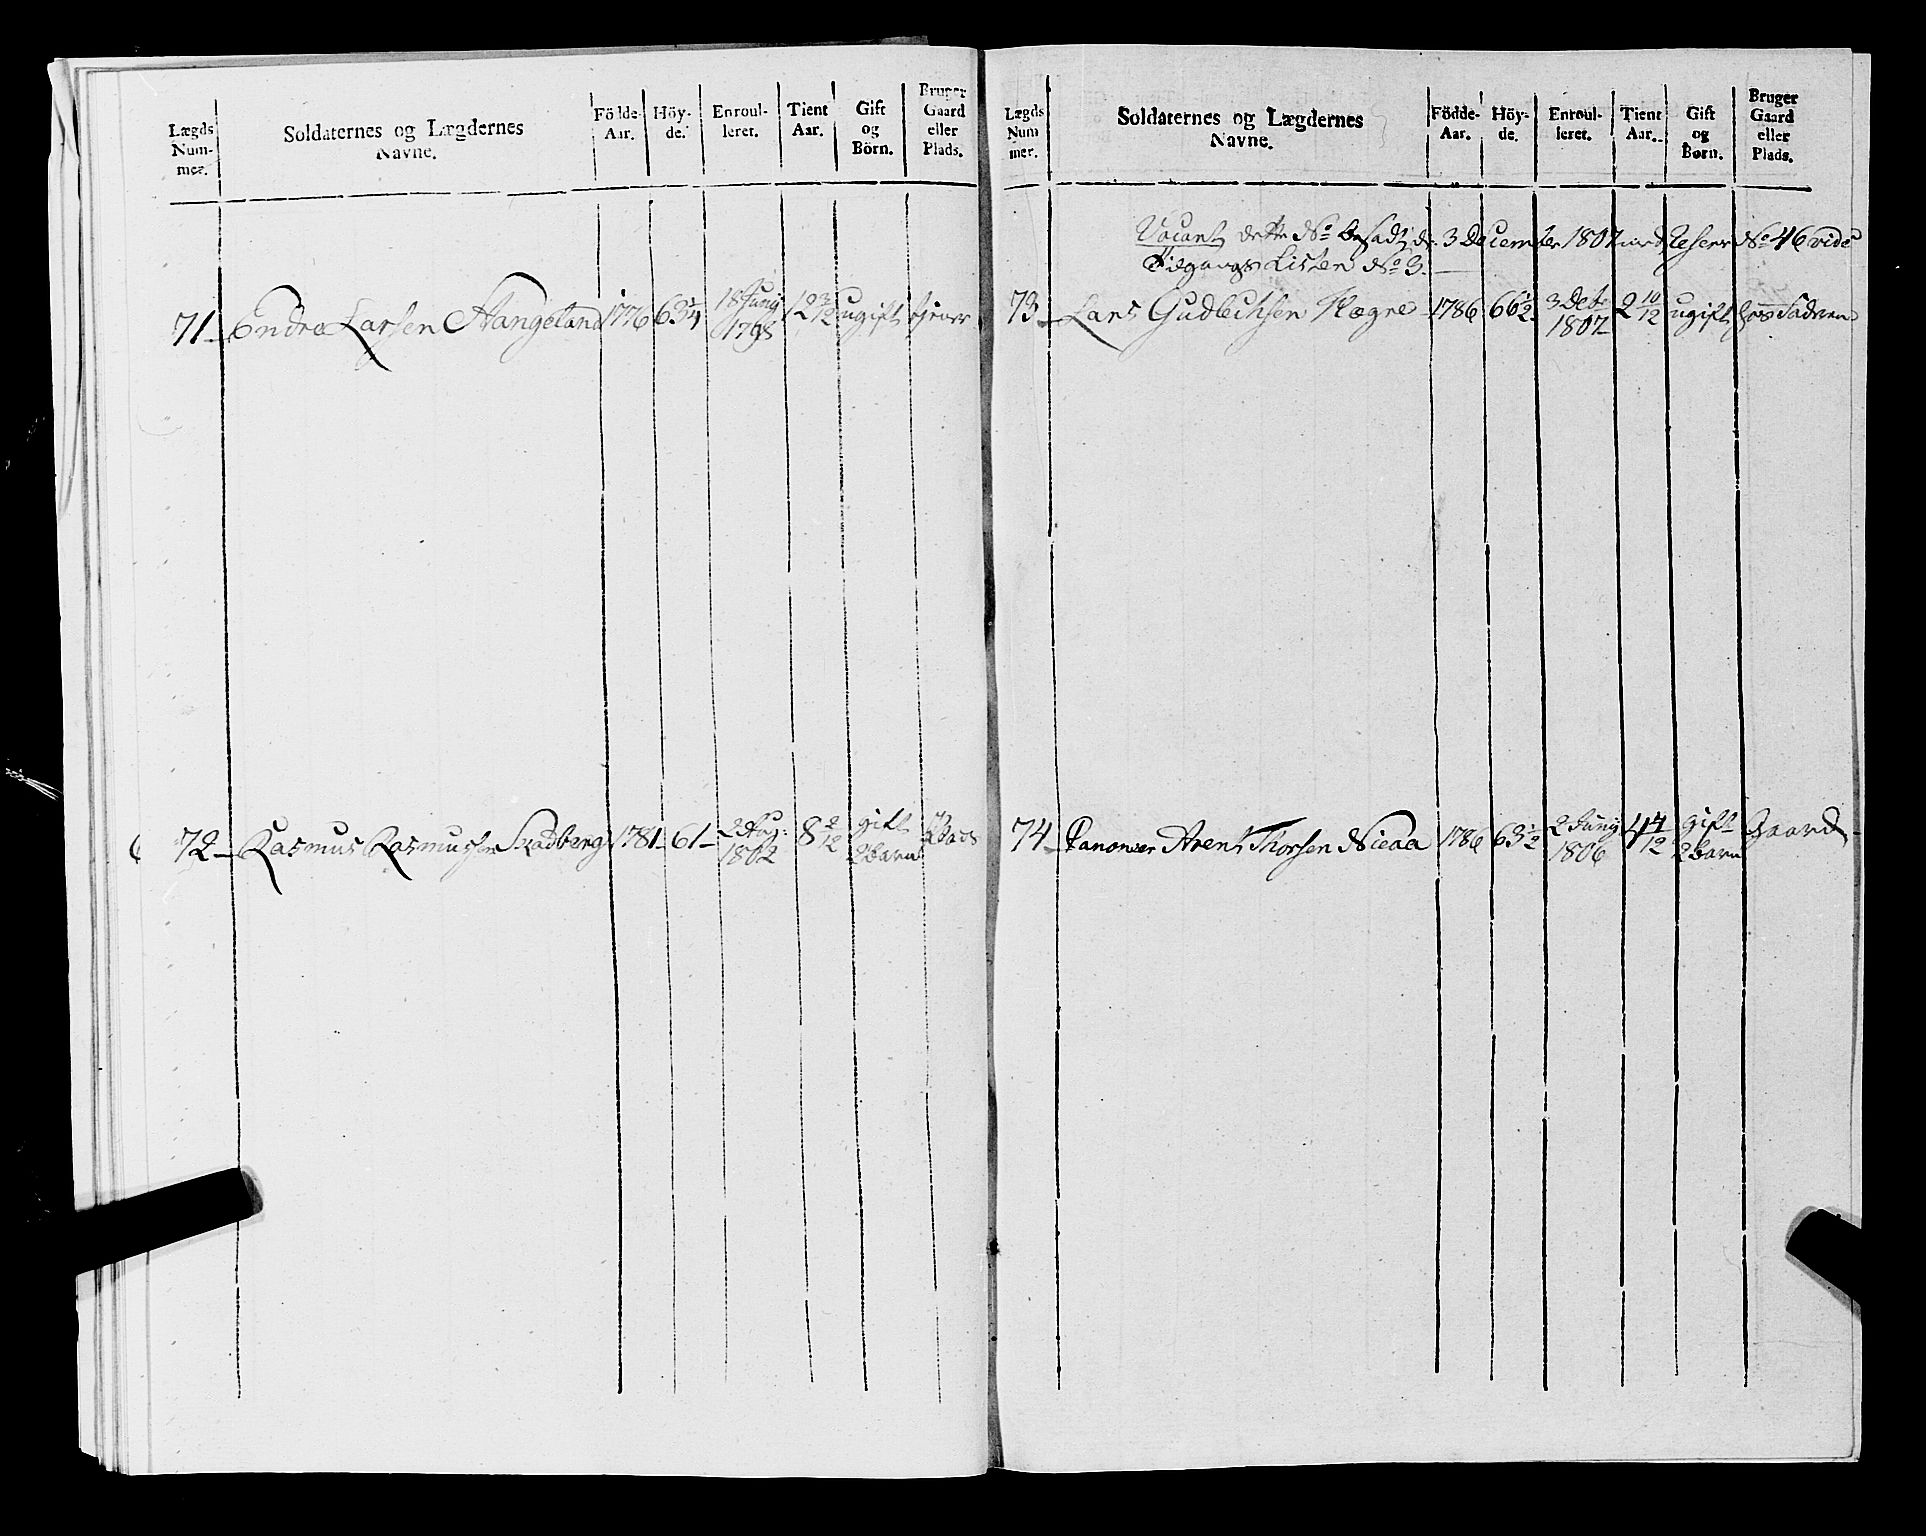 Lægds Num- mer. | Soldaternes og Lægdernes Navne. | Födde- Aar. | Höy- de. | Enroul- leret. | Tient Aar. | Gift og Börn. | Bruger Gaard eller Plads.
71 Endre Larsen Hangeland 1776 63 1/4 18 Junij 1798 12 3/12 ugift
72 Rasmus Rasmussen Skadberg 1781 61 2 Aug: 1802 8 2/12 gift 2 barn Plads
Lægds Num mer. | Soldaternes og Lægdernes Navne. | Födde- Aar. | Höy- de. | Enroul- leret. | Tient Aar. | Gift og Börn. | Bruger Gaard eller Plads.
Vacant dette No besadt d: 3 December 1807 med Reserv No 46 vide
Tilgangs Listen No 3.
73 Lars Gudlichsen Hægre 1786 66 1/2 3 Debr 1807 2 10/12 ugift hos Faderen
74 Canoneer Arent Thorsen Nieaa 1786 63 1/2 2 Junij 1806 4 4/12 gift 2 barn Gaard